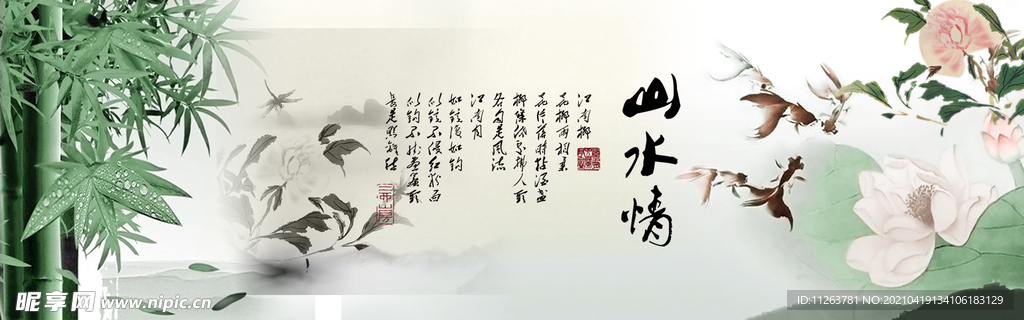 山水情
江南柳
花柳两相柔
花片落时黏酒盏
柳条低处拂人头
各自是风流
江南月
如镜复如钩
似镜不侵红粉面
似钩不挂画帘头
长是照离愁
昵享网 www.nipic.cn
ID:11263781 NO:20210419134106183129